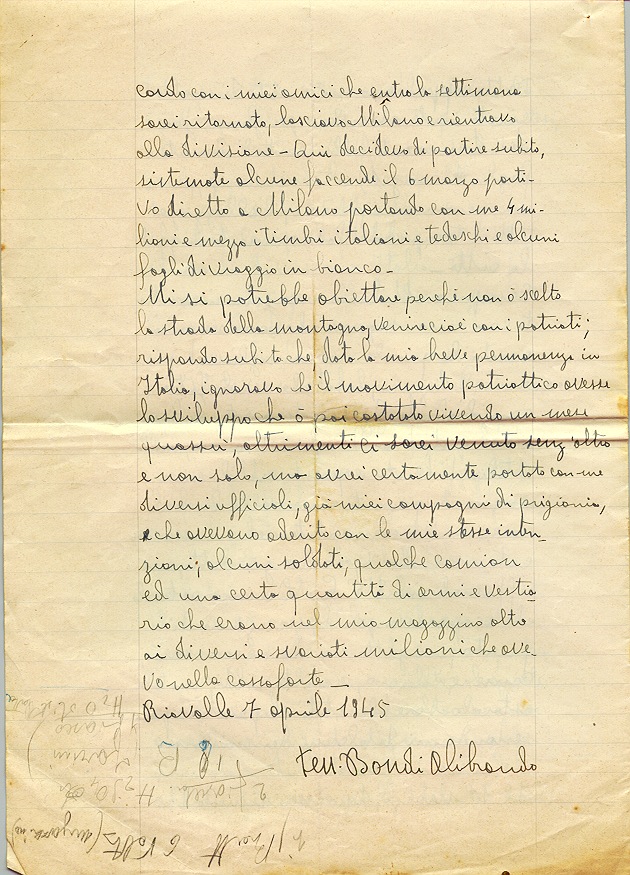 cordo con i miei amici che entro la settimana
sarei ritornato, lasciavo Milano e rientravo
alla divisione - Qui decidevo di partire subito,
sistemate alcune faccende il 6 marzo parti-
vo diretto a Milano portando con me 4 mi-
lioni e mezzo i timbri italiani e tedeschi e alcuni
fogli di viaggio in bianco -
Mi si potrebbe obiettare perché non ò scelto
la strada della montagna, venire cioé con i patrioti;
rispondo subito che data la mia breve permanenza in
Italia, ignoravo che il movimento patriottico avesse
lo sviluppo che ò poi costatato vivendo un mese
quassù, altrimenti ci sarei venuto senz'altro
e non solo, ma avrei certamente portato con me
diversi ufficiali, già miei compagni di prigionia,
che avevano aderito con le mie stesse inten-
zioni; alcuni soldati, qualche camion
ed una certa quantità di armi e vestia-
rio che erano nel mio magazzino oltre
ai diversi e svariati milioni che ave-
vo nella cassaforte -
Riovalle 7 aprile 1945
Ten. Bondi Alibrando
H2O
6 Volts